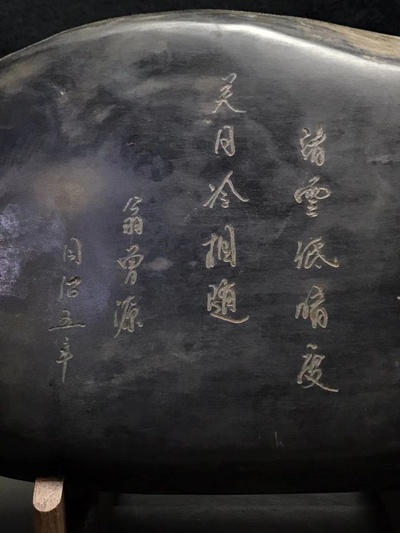 渚雲低暗度
关月冷相随
翁曾源
同治五年